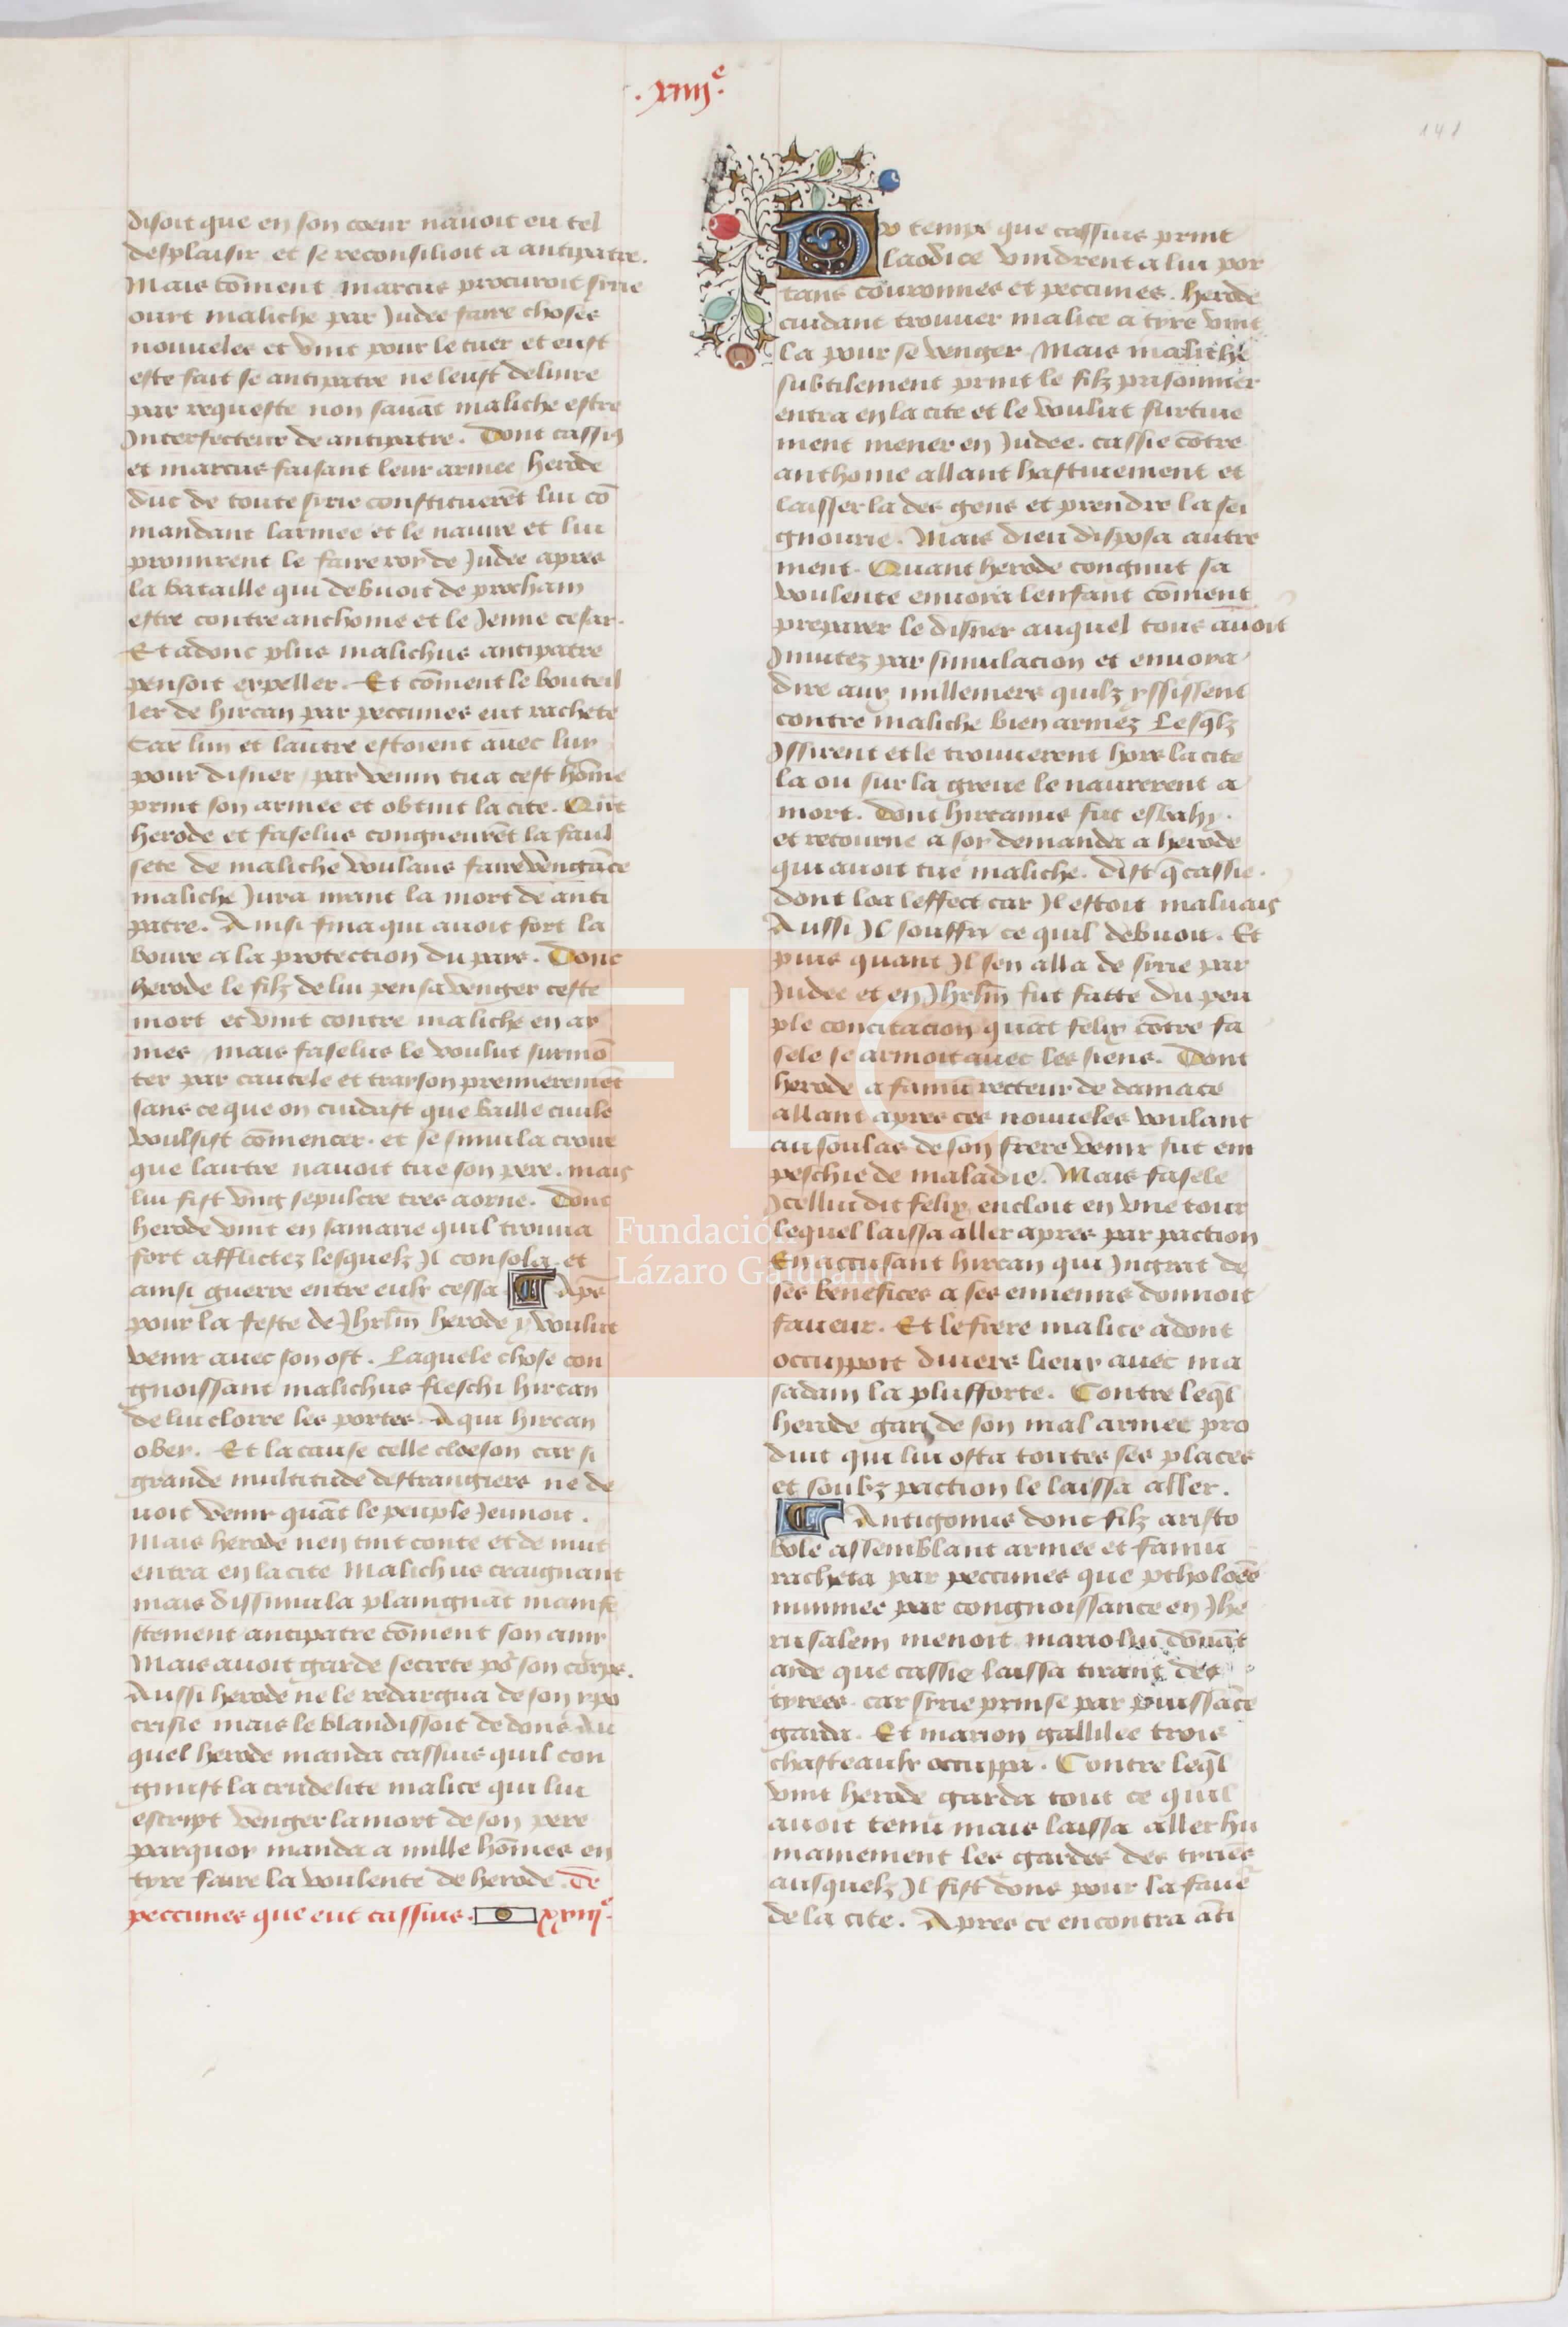 .xiiii.e
141
disoit que en son coeur nauoit eu tel
desplaisir et se reconsilioit a antipatre.
Mais cōment marcus procuroit sirie
ouit maliche par Judee faire choses
nouueles et vint pour le tuer et eust
este fait se antipatre ne leust deliure
par requeste non sauāt maliche estre
Interfecteur de antipatre. Dont cassiꝰ
et marcus faisant leur armee herode
duc de toute sirie constituerēt lui cō
mandant larmee et le nauire et lui
promirent le faire roy de Judee apres
la bataille qui debuoit de prochain
estre contre anthoine et le Jenne cesar.
Et adonc plus malichus antipatre
pensoit expeller. Et cōment le bouteil
ler de hircan par peccunes eut rachete
Car lun et lautre estoient auec luy
pour disner par venin tua cest hōme
print son armee et obtint la cite. Qūt
herode et faselus congneurēt la faul
sete de maliche voulans faire vengāce
maliche Jura niant la mort de anti
patre. Ainsi fina qui auoit fort la
boure a la protection du pais. Donc
herode le filz de lui pensa venger ceste
mort et vint contre maliche en ar
mes mais faselus le voulut surmō
ter par cautele et traison premieremēt
sans ce que on cuidast que baille ciuile
voulsist cōmencer. et se simula croire
que lautre nauoit tue son pere. mais
lui fist vng sepulcre tres aorne. Donc
herode vint en samarie quil trouua
fort afflictez lesquelz Jl consola. et
ainsi guerre entre eulx cessa. Apꝭ
pour la feste de Jhrlm̄ herode y voulut
venir auec son ost. Laquele chose con
gnoissant malichus fleschi hircan
de lui clorre les portes. A qui hircan
obey. Et la cause celle cloeson car si
grande multitude destrangiers ne de
uoit venir quāt le peuple Jeunoit.
Mais herode nen tint conte et de nuit
entra en la cite Malichus craignant
mais dissimula plaingnāt manife
stement antipatre cōment son amy
Mais auoit garde secrete po' son corps.
Aussi herode ne le redargua de son ypo
crisie mais le blandissoit de dons Au
quel herode manda cassius quil con
gnust la crudelite malice qui lui
escript venger la mort de son pere
parquoy manda a mille hōmes en
tyre faire la voulente de herode. De
peccunes que eut cassius. xxiiii.e
Du temps que cassius print
laodice vindrent a lui por
tans couronnes et peccunes. herode
cuidant trouuer malice a tyre vint
la pour se venger. Mais maliche
subtilement print le filz prisonnier
entra en la cite et le voulut furtiue
ment mener en Judee. cassie cōtre
anthoine allant hastiuement et
laisser la des gens et prendre la sei
gnourie. Mais dieu disposa autre
ment. Quant herode congnut sa
voulente enuoia lenfant cōment
preparer le disner auquel tous auoit
Inuitez par simulacion et enuoya
dire aux milleniers quilz yssissent
contre maliche bien armez Lesq̄lz
Issirent et le trouuerent hors la cite
la ou sur la greue le naurerent a
mort. Dont hircanus fut esbahy.
et retourne a soy demanda a herode
qui auoit tue maliche. dist q̄ cassie.
dont loa leffect car Jl estoit maluais
Aussi Jl souffry ce quil debuoit. Et
puis quant Jl sen alla de sirie par
Judee et en Jhrlm̄ fut fatte du peu
ple concitacion quāt felix cōtre fa
sele se armoit auec les siens. Dont
herode a famiu recteur de damace
allant apres ces nouueles voulant
au soulas de son frere venir fut em
peschie de maladie. Mais fasele
Jcellui dit felix encloit en vne tour
lequel laissa aller apres par paction
En accusant hircan qui Ingrat de
ses benefices a ses ennemis donnoit
faueur. Et le frere malice adont
occuppoit diuers lieux auec ma
sadam la plusforte. Contre leq̄l
herode gari de son mal armee pro
duit qui lui osta toutes ses places
et soubz paction le laissa aller.
Antigonus dont filz aristo
bole assemblant armee et famiu
racheta par peccunes que ptholoēe
mimee par congnoissance en Jhe
rusalem menoit marion lui donāt
aide que cassie laissa tirant des
tyrees. car syrie prinse par puissāce
garda. Et marion gallilee trois
chasteaulx occuppa. Contre leq̄l
vint herode garda tout ce quil
auoit tenu mais laissa aller hu
mainement les gardes des tyriēs
ausquelz Jl fist dons pour la faue'
de la cite. Apres ce encontra āti
FLG
Fundación
Lázaro Galdiano